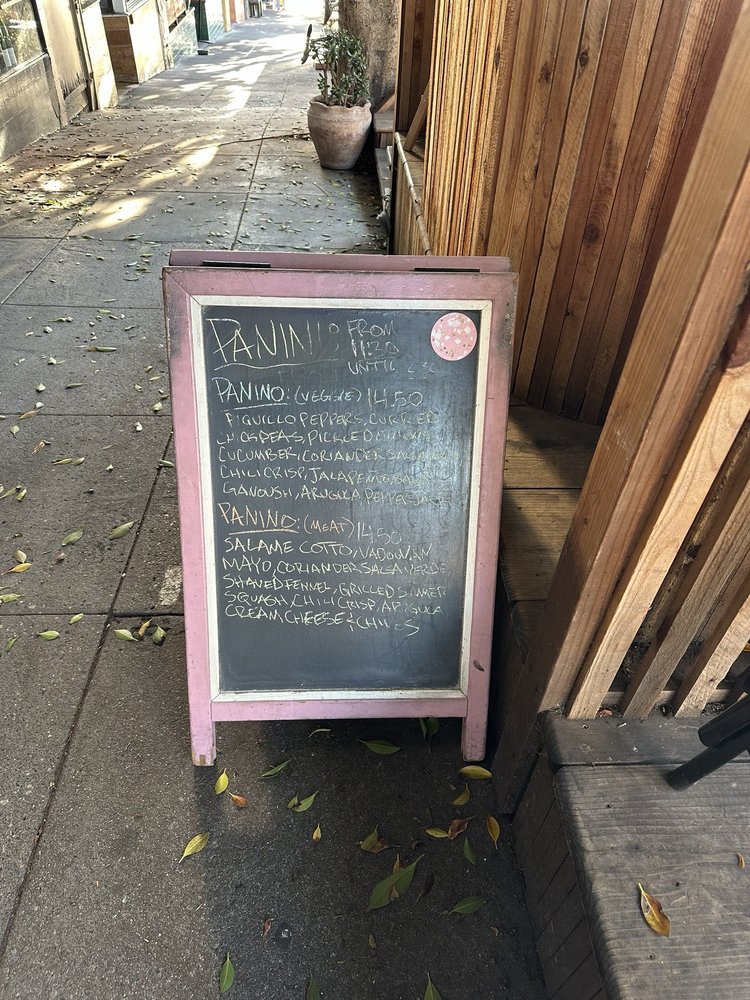 PANINI: FROM
11:30
UNTIL
PANINO: (VEGGIE) 14.50
PIQUILLO PEPPERS, CURRIED
CHICKPEAS, PICKLED ONIONS
CUCUMBER, CORIANDER SALSA
CHILI CRISP, JALAPENO, BABA
GANOUSH, ARUGULA PEPPERJACK
PANINO: (MEAT) 14.50
SALAME COTTO, VADOUVAN
MAYO, CORIANDER SALSA VERDE
SHAVED FENNEL, GRILLED SUMMER
SQUASH, CHILI CRISP, ARUGULA
CREAM CHEESE & CHIVES